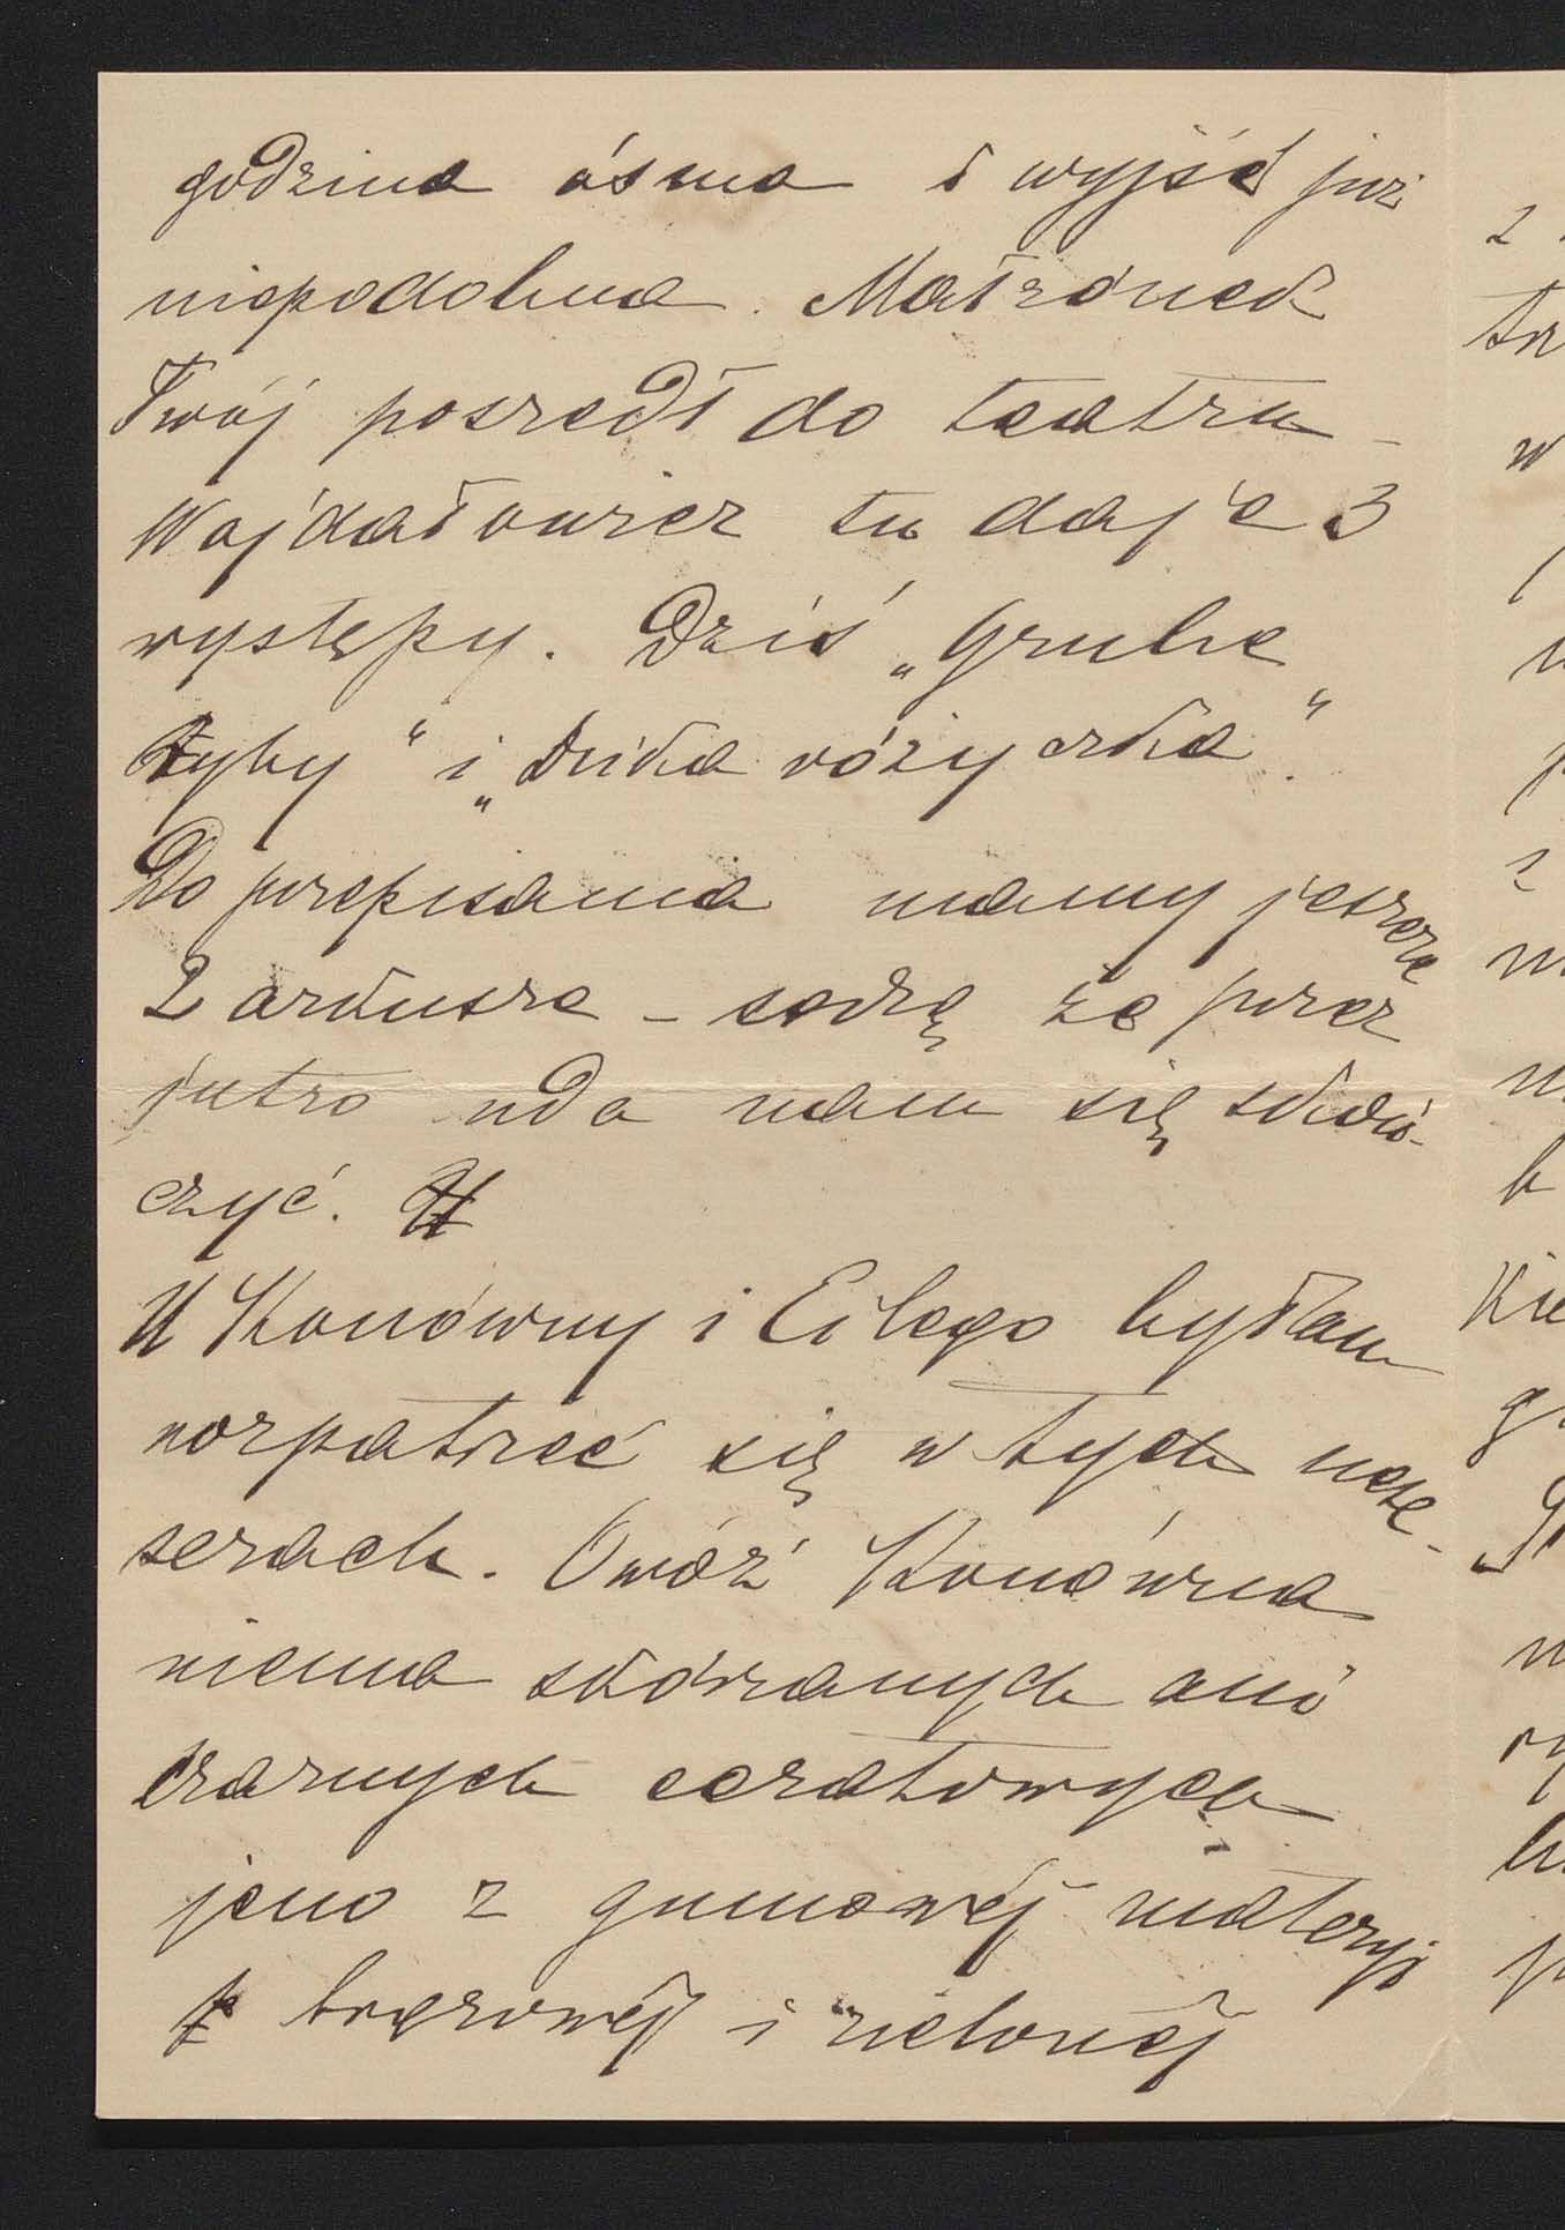 godzina ósma i wyjść już
niepodobna. Małżonek
Twój poszedł do teatru –
Wojdałowicz tu daje 3
występy. Dziś „Grube
ryby" i „Dzika różyczka".
Do przepisania mamy jeszcze
2 arkusze – sądzę że przez
jutro uda nam się skoń-
czyć.
U Konówny i Eilego byłam
rozpatrzeć się w tych nese-
serach. Owóż Konówna
niema skórzanych ani
czarnych ceratowych
jeno z gumowéj materyi
brązowéj i zielonéj